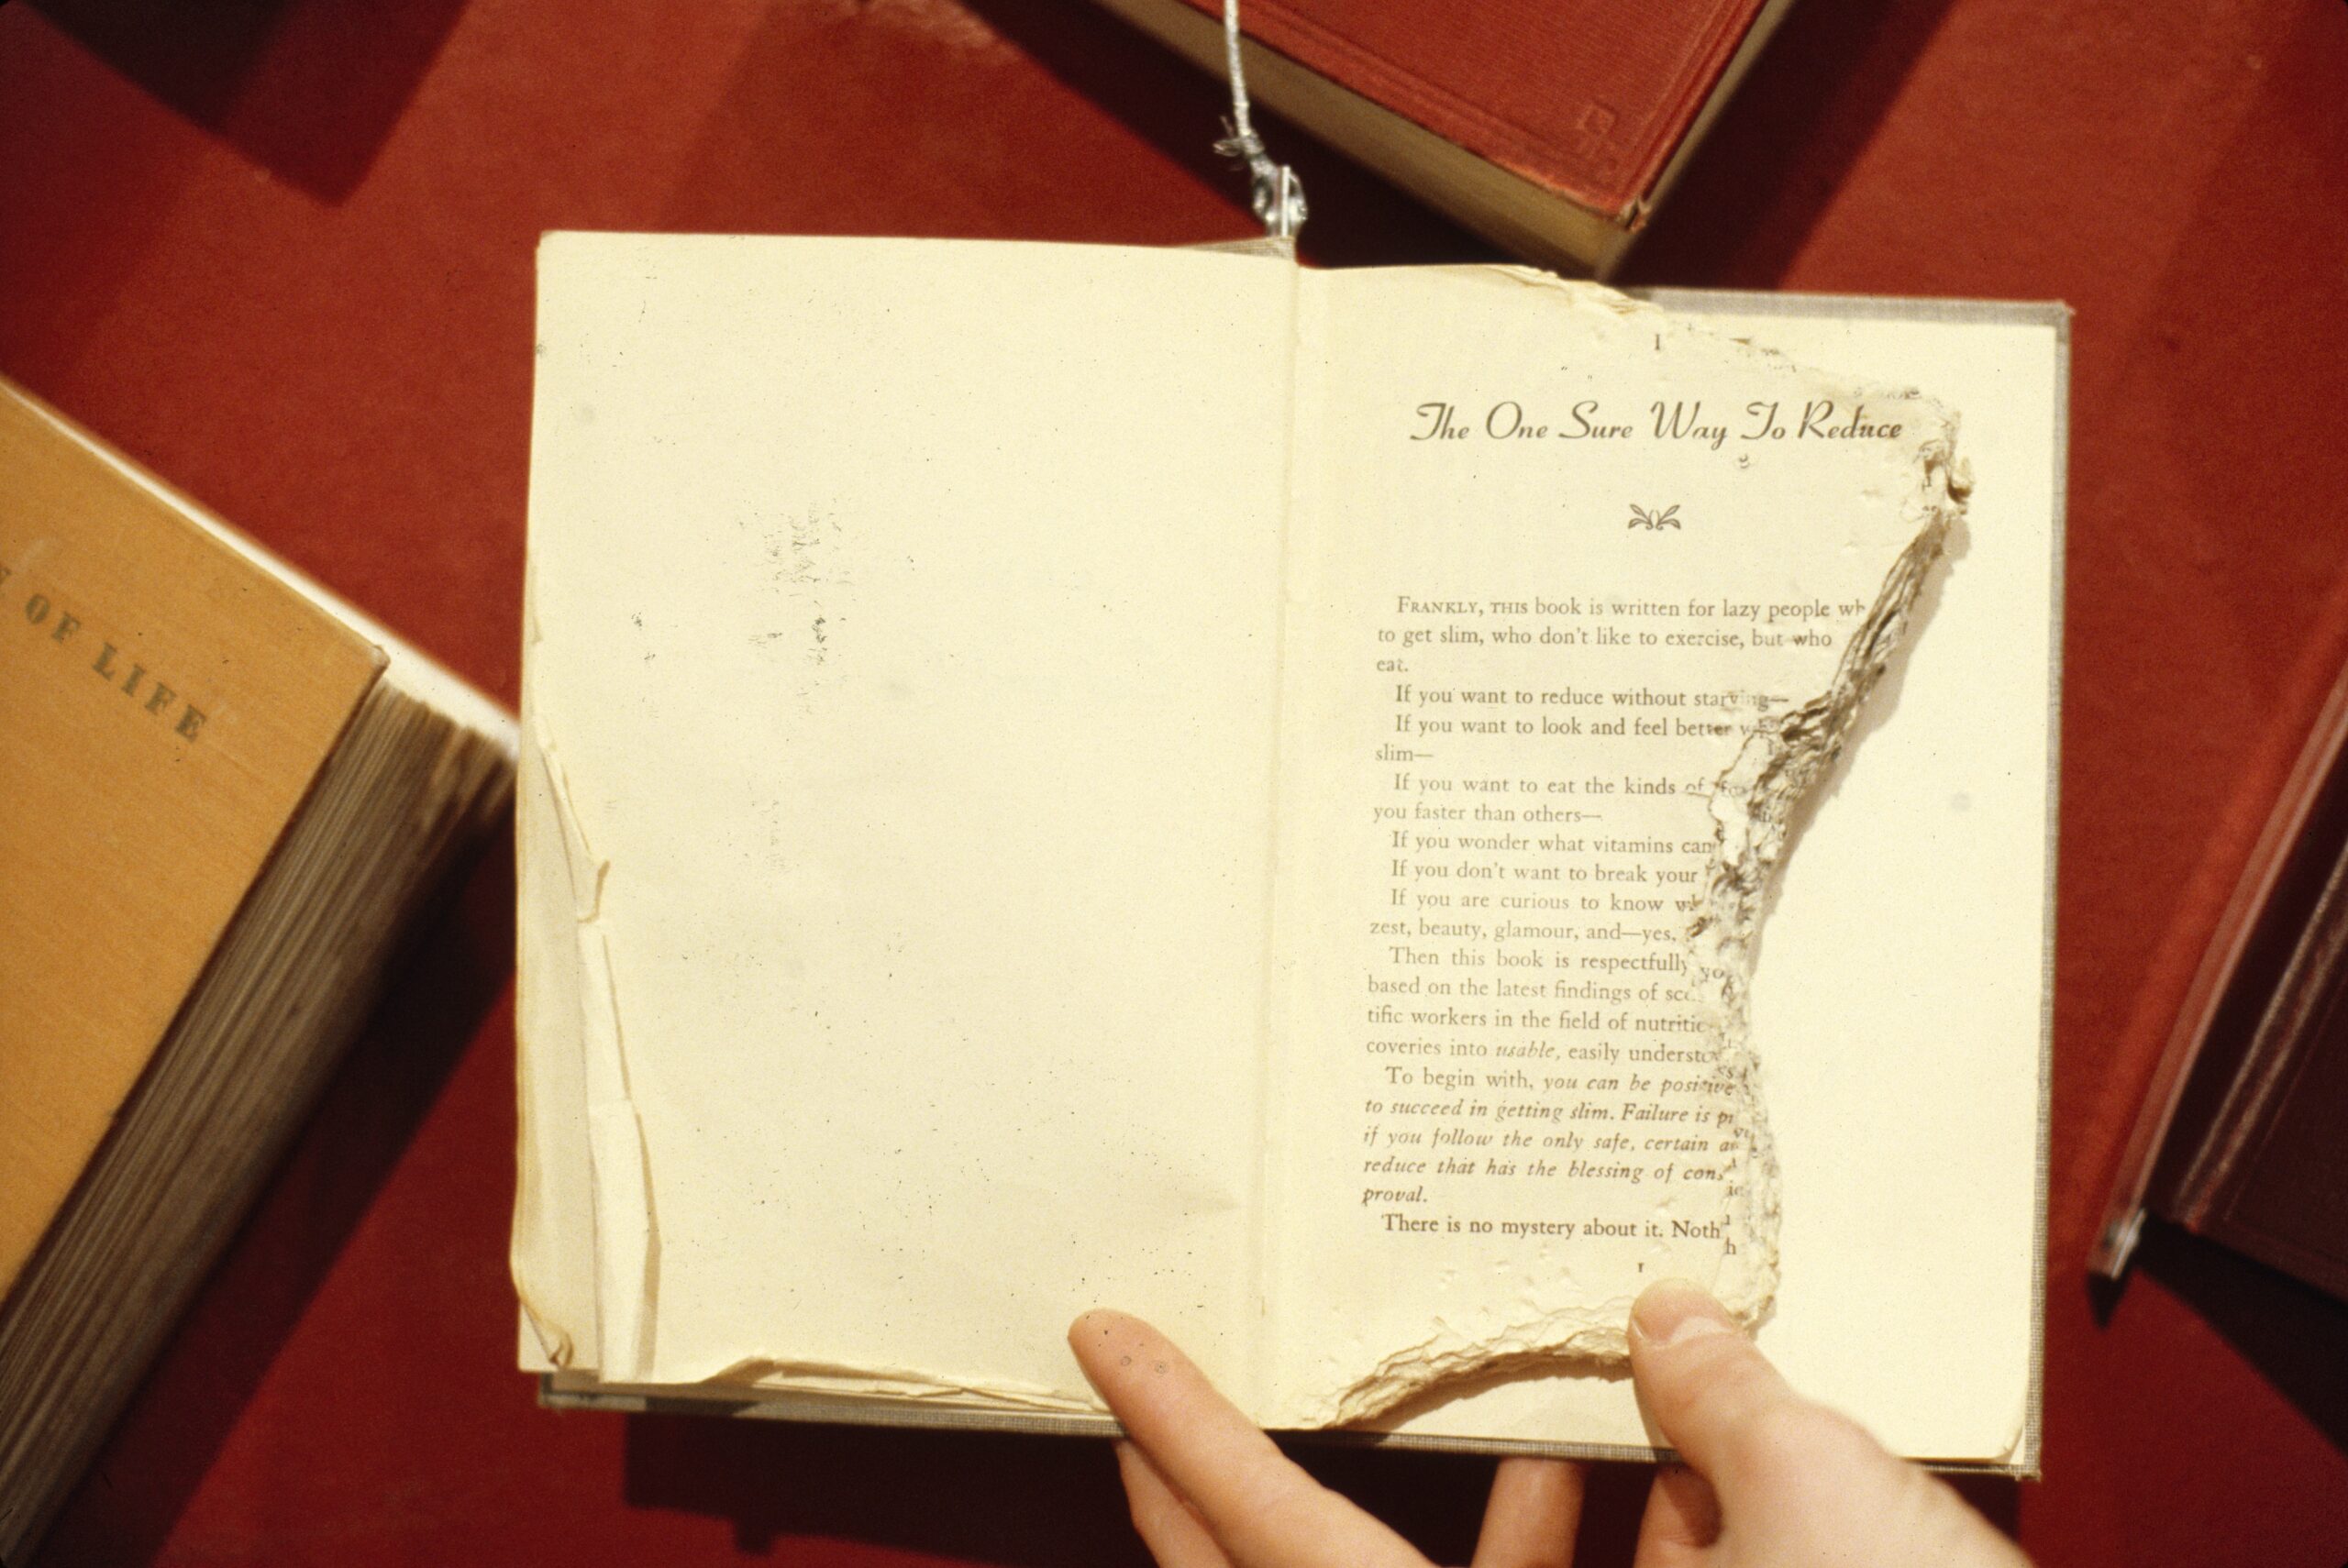 OF LIFE
I
The One Sure Way To Reduce
FRANKLY, THIS book is written for lazy people
to get slim, who don't like to exercise, but who
eat.
If you want to reduce without starving—
If you want to look and feel better
slim—
If you want to eat the kinds of
you faster than others—
If you wonder what vitamins can
If you don't want to break your
If you are curious to know
zest, beauty, glamour, and—yes,
Then this book is respectfully
based on the latest findings of
tific workers in the field of
coveries into usable, easily
To begin with, you can be
to succeed in getting slim. Failure is
if you follow the only safe, certain
reduce that has the blessing of
proval.
There is no mystery about it.